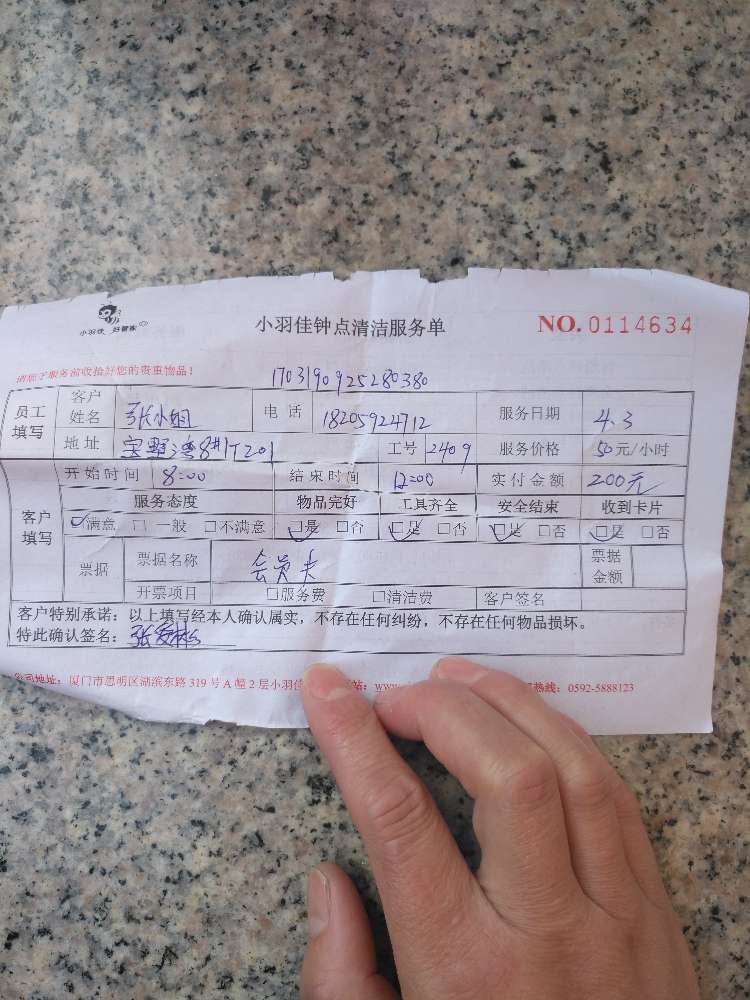 小羽佳 好管家
小羽佳钟点清洁服务单
NO. 0114634
请您于服务前收拾好您的贵重物品！
1703190925280380
员工填写 客户姓名 张小姐 电话 18205924712 服务日期 4.3
地址 宝墅湾8#1T201 工号 2409 服务价格 50元/小时
客户填写 开始时间 8:00 结束时间 12:00 实付金额 200元
服务态度 物品完好 工具齐全 安全结束 收到卡片
☑满意 □一般 □不满意 ☑是 □否 ☑是 □否 ☑是 □否 ☑是 □否
票据 票据名称 会员卡 票据金额
开票项目 □服务费 □清洁费 客户签名
客户特别承诺：以上填写经本人确认属实，不存在任何纠纷，不存在任何物品损坏。
特此确认签名：张
公司地址：厦门市思明区湖滨东路 319 号 A 幢 2 层小羽佳 站：www. 热线：0592-5888123